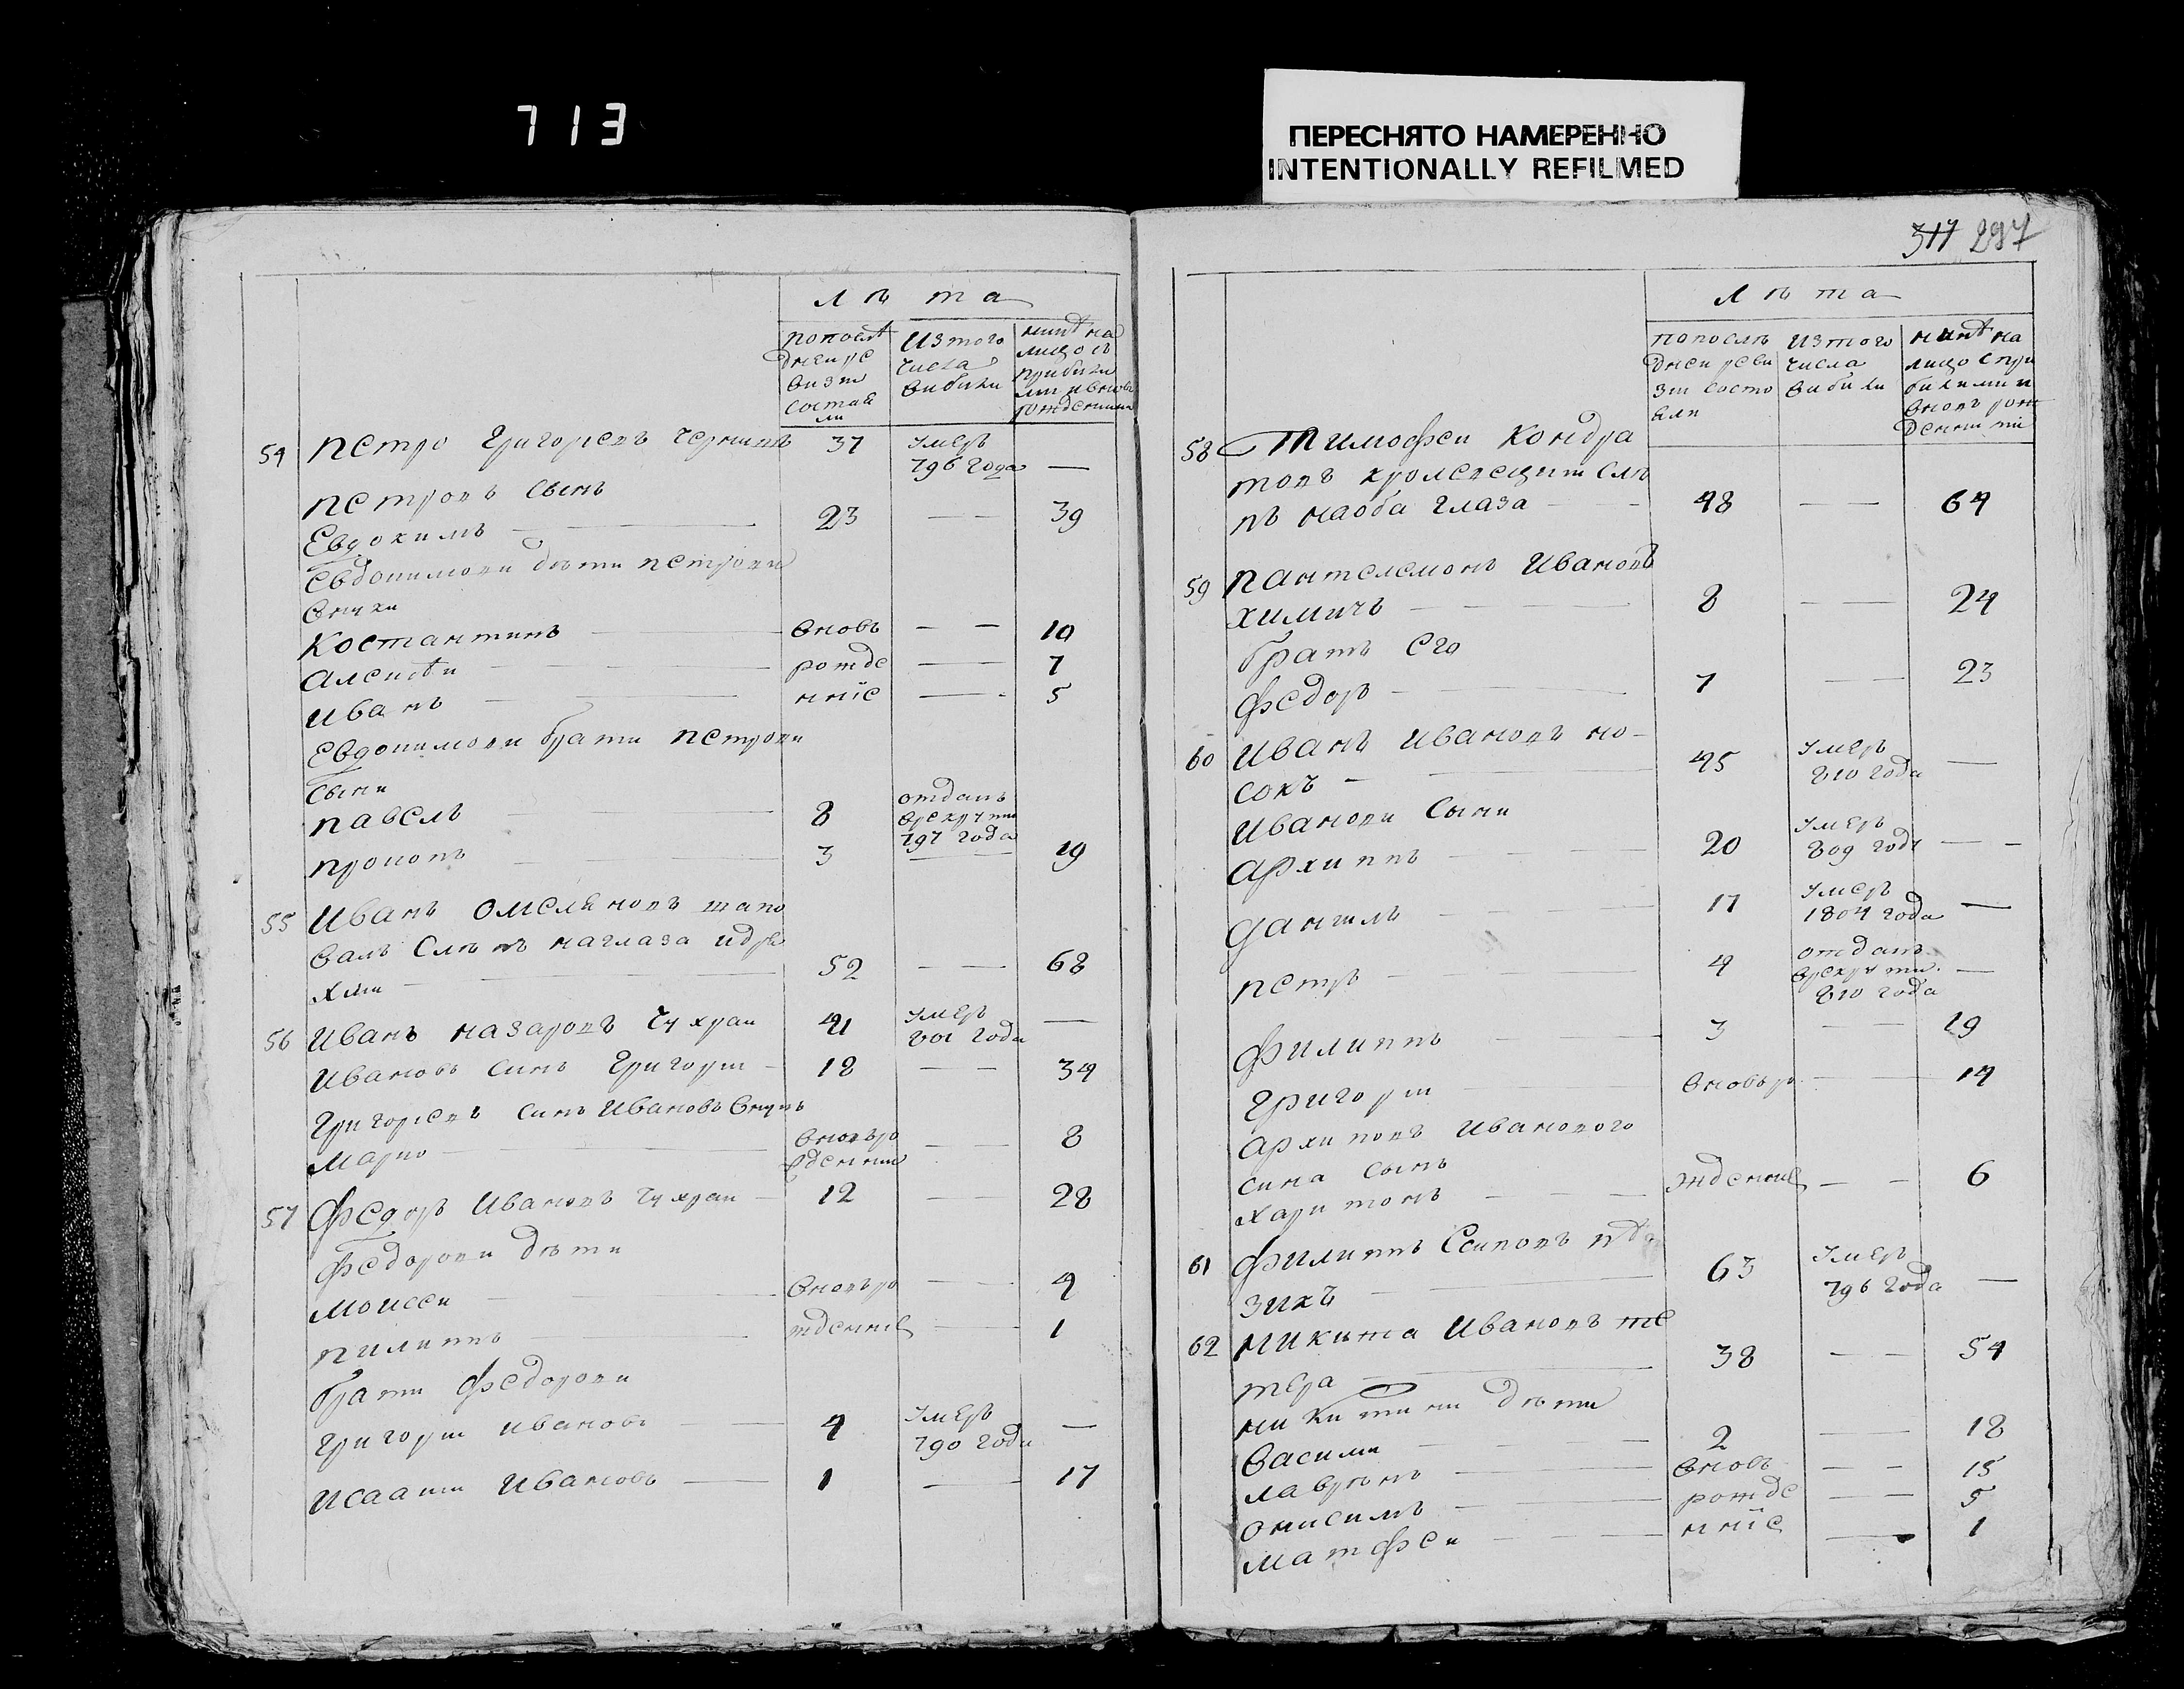 713
ПЕРЕСНЯТО НАМЕРЕННО
INTENTIONALLY REFILMED
317 297
лѣта
попослѣ
дней ре
визіи
состоя
ли
изтого
числа
выбыли
нынѣ на
лицо съ
прибыли
ми и внов
рожденными
54 Петро Григорьевъ 37 умеръ
796 года —
Петровъ сынъ
Евдокимъ 23 — 39
Евдокимови дѣти петрови
внуки
Костантинъ вновь — 10
Алексѣй рожде — 7
Иванъ нніе — 5
Евдокимови брати Петрови
сыни
Павелъ 8 отданъ
врекрути
797 года
Прокопъ 3 — 19
55 Иванъ Омеляновъ шапо
валъ слѣпъ наглаза идря
хлъ 52 — 68
56 Иванъ Назаровъ Чухрай 41 умеръ
801 года —
Ивановъ синъ Григорій 18 — 34
Григорьевъ синъ Ивановъ внукъ
Марко вновьро
жденній — 8
57 Федоръ Ивановъ Чухрай 12 — 28
Федорови дѣти
Моисей вновьро — 4
Пилипъ жденніе — 1
брати Федорови
Григорій Ивановъ 4 умеръ
790 года —
Исаакій Ивановъ 1 — 17
лѣта
попослѣ
дней реви
зіи состо
яли
изтого
числа
выбыли
нынѣ на
лицо спри
былыми и
вновь рож
денными
58 Тимофей Кондра
товъ слѣ
пъ наоба глаза 48 — 64
59 Пантелемонъ Ивановъ
Химичъ 8 — 24
братъ его
Федоръ 7 — 23
60 Иванъ Ивановъ но-
сокъ 45 умеръ
810 года —
Иванови сыни
Архиппъ 20 умеръ
809 году —
Данилъ 17 умеръ
1804 года —
Петръ 4 отданъ
врекрути
810 года —
Филиппъ 3 — 19
Григорій вновьро — 14
Архиповъ Иванового
сина сынъ
Харитонъ жденніе — 6
61 Филиппъ Есиповъ
зикъ 63 умеръ
796 года —
62 Микита Ивановъ те
тера 38 — 54
Микитини дѣти
Василій 2 — 18
Лаврѣнъ вновь — 15
Онисимъ рожде — 5
Матфей нніе — 1